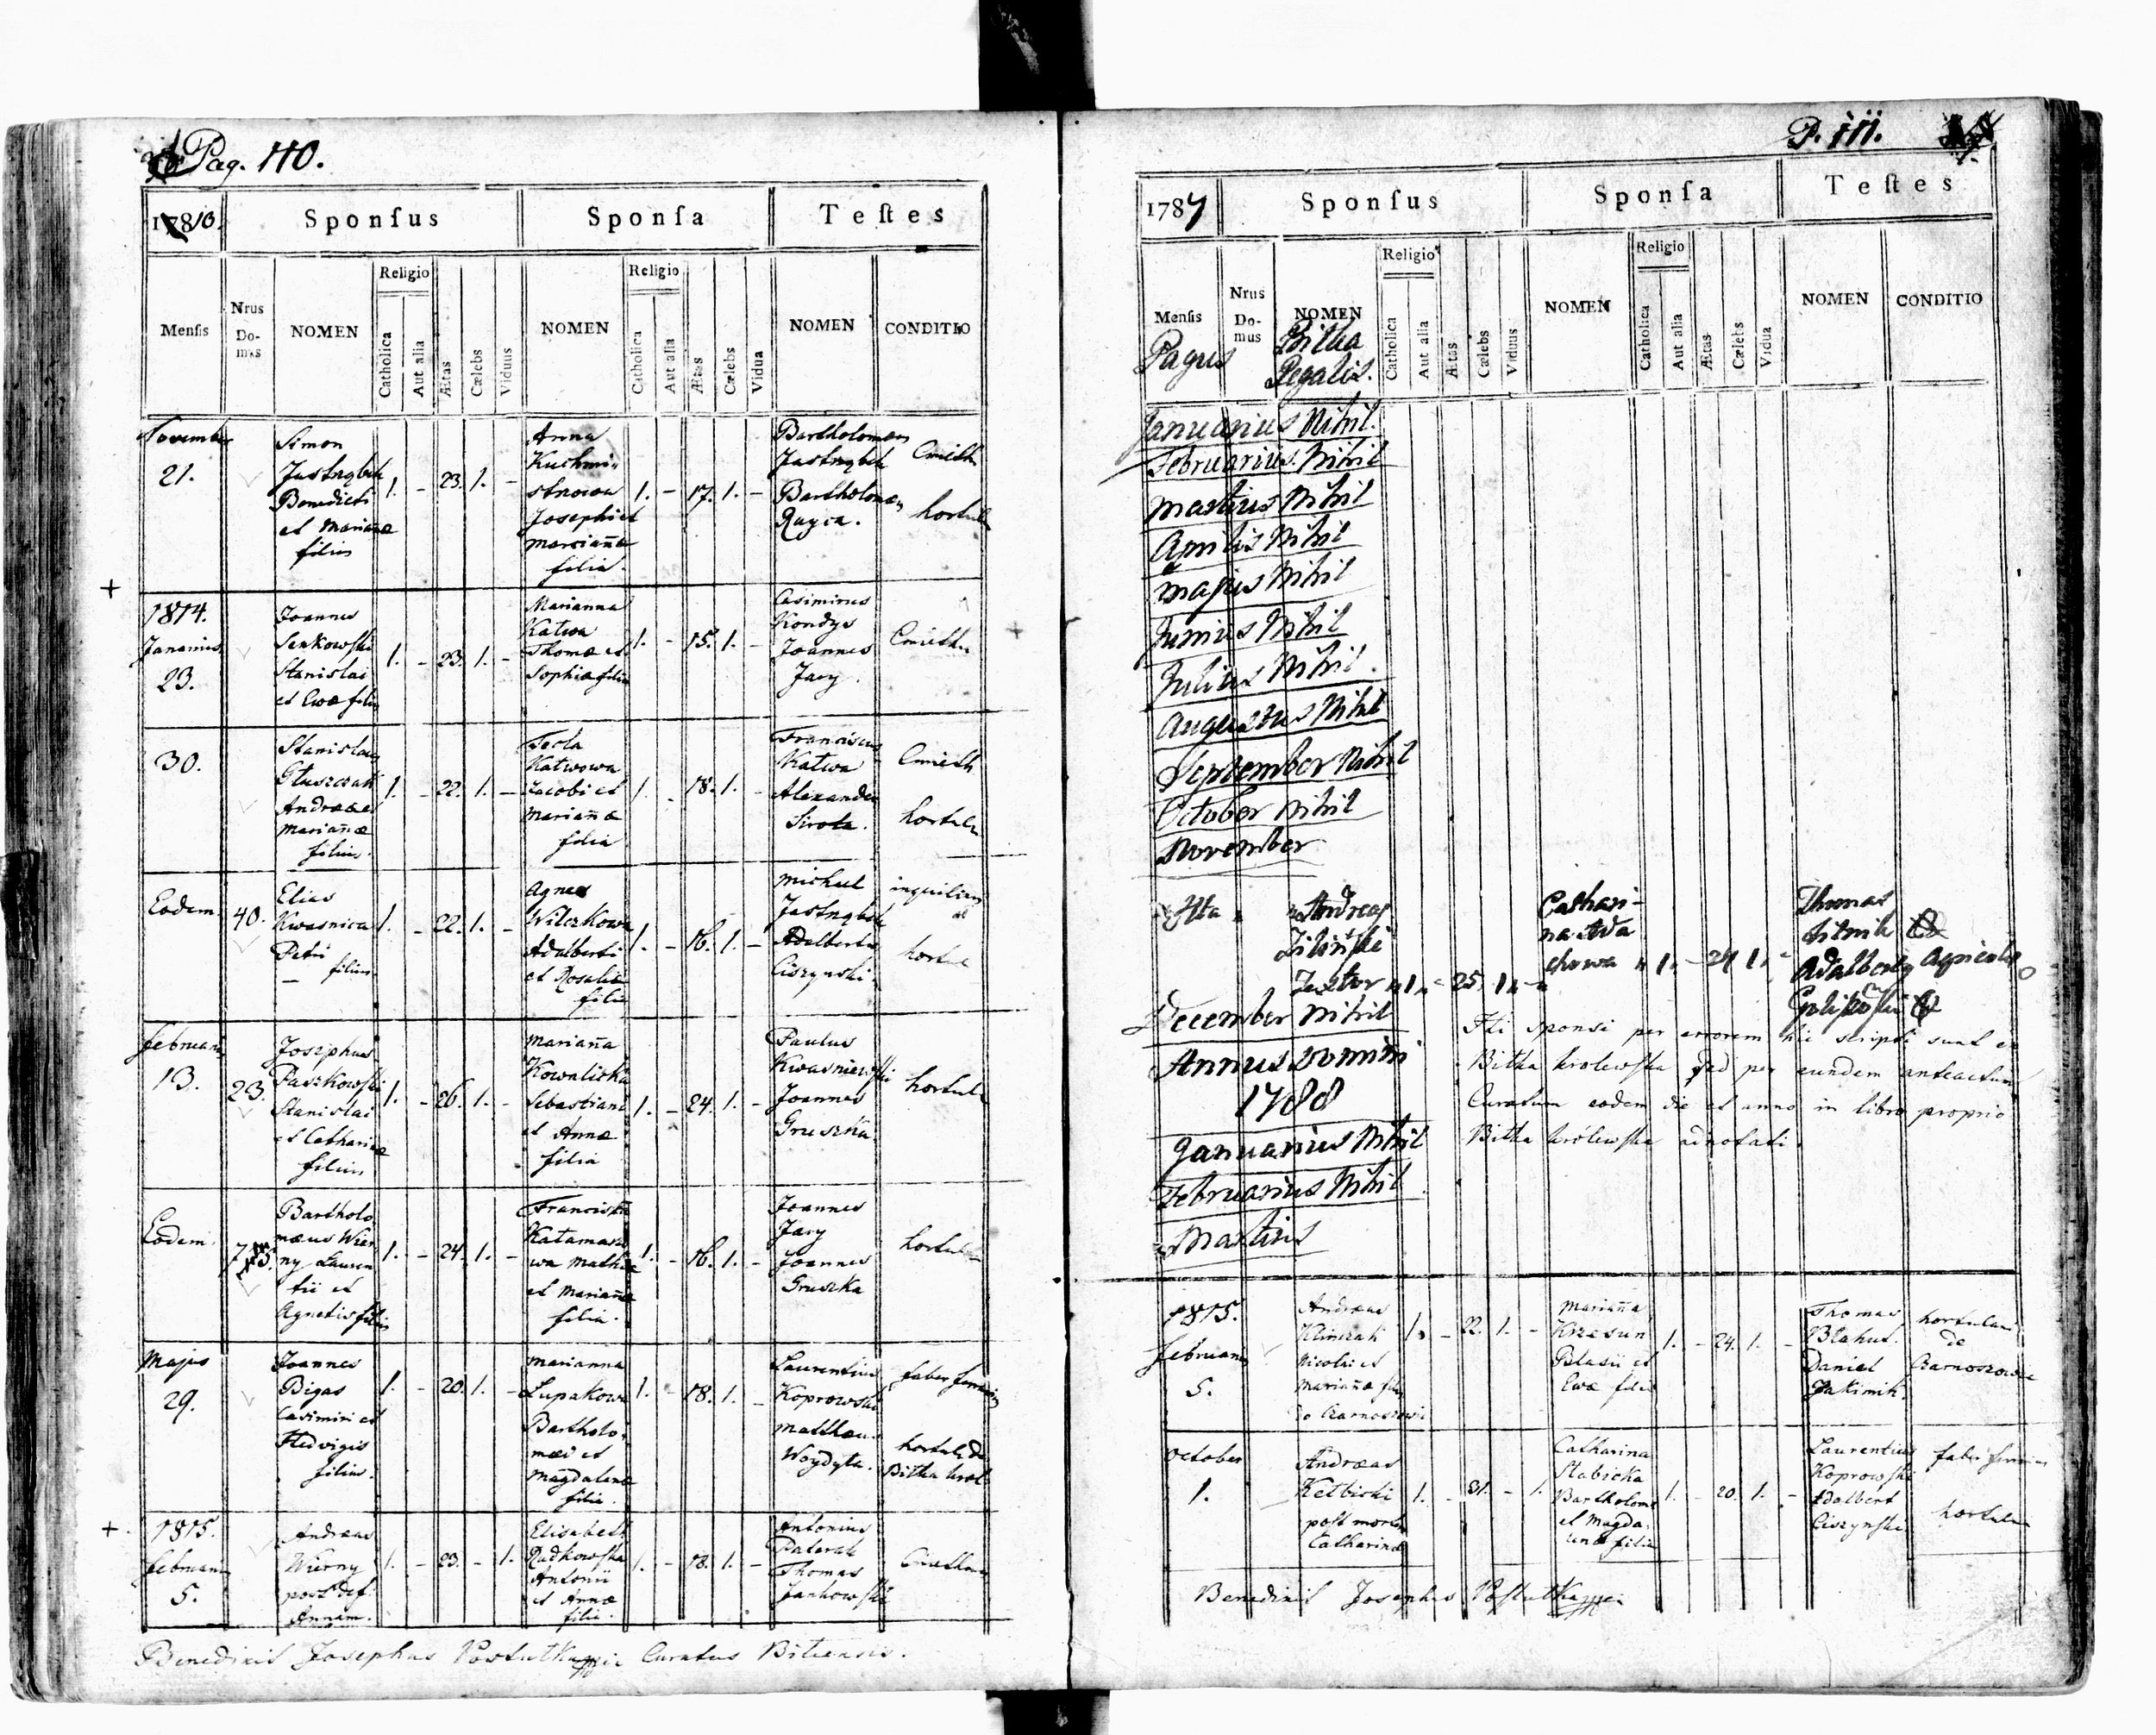 Pag. 110.
1810.
Sponſus
Sponſa
Teſtes
Menſis
Nrus Do-mus
NOMEN
Religio
Catholica
Aut alia
Ætas
Cælebs
Viduus
NOMEN
Religio
Catholica
Aut alia
Ætas
Cælebs
Vidua
NOMEN
CONDITIO
November
21.
Simon
Jastrzębek
Benedicti
et Mariañæ
filius
1. - 23. 1. -
Anna
Josephi et
Mariañæ
filia.
1. - 17. 1. -
Bartholomæus
Jastrzębek
Bartholomæus
1814.
Januarius
23.
Joannes
Senkowski
Stanislai
et Evæ filius
1. - 23. 1. -
Marianna
Katwa
Thomæ et
Sophiæ filia
1. - 15. 1. -
Casimirus
Kondys
Joannes
Jary.
30.
Stanislaus
Głuszczak
Andreæ et
Mariañæ
filius.
1. - 22. 1. -
Tecla
Katwowa
Jacobi et
Mariañæ
filia
1. - 18. 1. -
Franciscus
Katwa
Alexander
Sirota.
Eodem.
40.
Elias
Kwasnica
Petri
filius.
1. - 22. 1. -
Agnes
Wilczkowa
Adalberti
et Rosaliæ
filia
1. - 16. 1. -
Michael
Jastrzębek
Adalbertus
Ciszynski.
Februarius
13.
23.
Josephus
Paszkowski
Stanislai
et Catharinæ
filius
1. - 26. 1. -
Mariaña
Kowalicka
Sebastiani
et Annæ
filia
1. - 24. 1. -
Paulus
Kwasniewski
Joannes
Gruszka.
Eodem.
Bartholo
mæus Wier
ny Lauren
tii et
Agnetis filius
1. - 24. 1. -
Francisca
Katamasz
wa Mathiæ
et Mariañæ
filia.
1. - 16. 1. -
Joannes
Jary
Joannes
Gruszka
Majus
29.
Joannes
Bigas
Casimiri et
Hedvigis
filius.
1. - 20. 1. -
Marianna
Lupakowa
Bartholo
mæi et
Magdalenæ
filia.
1. - 18. 1. -
Laurentius
Koprowski
Matthæus
Woydyta.
faber ferrarius
hortul. de
Bitka krol
1815.
Februarius
5.
Andreas
Wierny
post def.
Annam.
1. - 23. - 1.
Elisabeth
Radkowska
Antonii
et Annæ
filia.
1. - 18. 1. -
Antonius
Paterak
Thomas
Jankowski
Benedixit Josephus Curatus Bitiensis.
P. 111.
1787
Sponſus
Sponſa
Teſtes
Menſis
Nrus Do-mus
NOMEN
Religio
Catholica
Aut alia
Ætas
Cælebs
Viduus
NOMEN
Religio
Catholica
Aut alia
Ætas
Cælebs
Vidua
NOMEN
CONDITIO
Pagus Bitka
Regalis.
Januarius Nihil.
Februarius. Nihil
Martius Nihil
Aprilis Nihil
Majus Nihil
Junius Nihil
Julius Nihil.
Augustus Nihil
September Nihil
October Nihil
November
Andreas
Textor 1 - 25. 1
Cathari-
na
1. - 24 1. -
Thomas
Sitnik
Adalbertus Agricola
December Nihil
Annus Domini
1788
Januarius Nihil
Februarius Nihil
Martius
Hi sponsi per errorem hic scripti sunt ex
Bitka krolewska sed per eundem anteactum
Curatum eodem die et anno in libro proprio
Bitka królewska adnotati.
1815.
Februarius
5.
Andreas
Klimczak
Nicolai et
Mariañæ filius
1. - 22. 1. -
Mariaña
Krzesun
Blasii et
Evæ filia
1. - 24. 1. -
Thomas
Błahut.
Daniel
Jakimik.
hortulani
de
October
1.
Andreas
Kełbicki
post mortem
Catharinæ
1. - 31. - 1.
Catharina
Słabicka
Bartholomæi
et Magda
lenæ filia
1. - 20. 1. -
Laurentius
Koprowski
Adalbert
Ciszynski
faber ferrarius
Benedixit Josephus